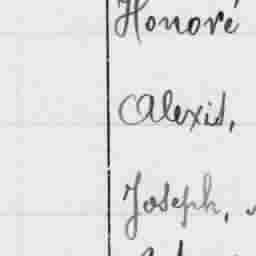 Honoré
Alexis,
Joseph,